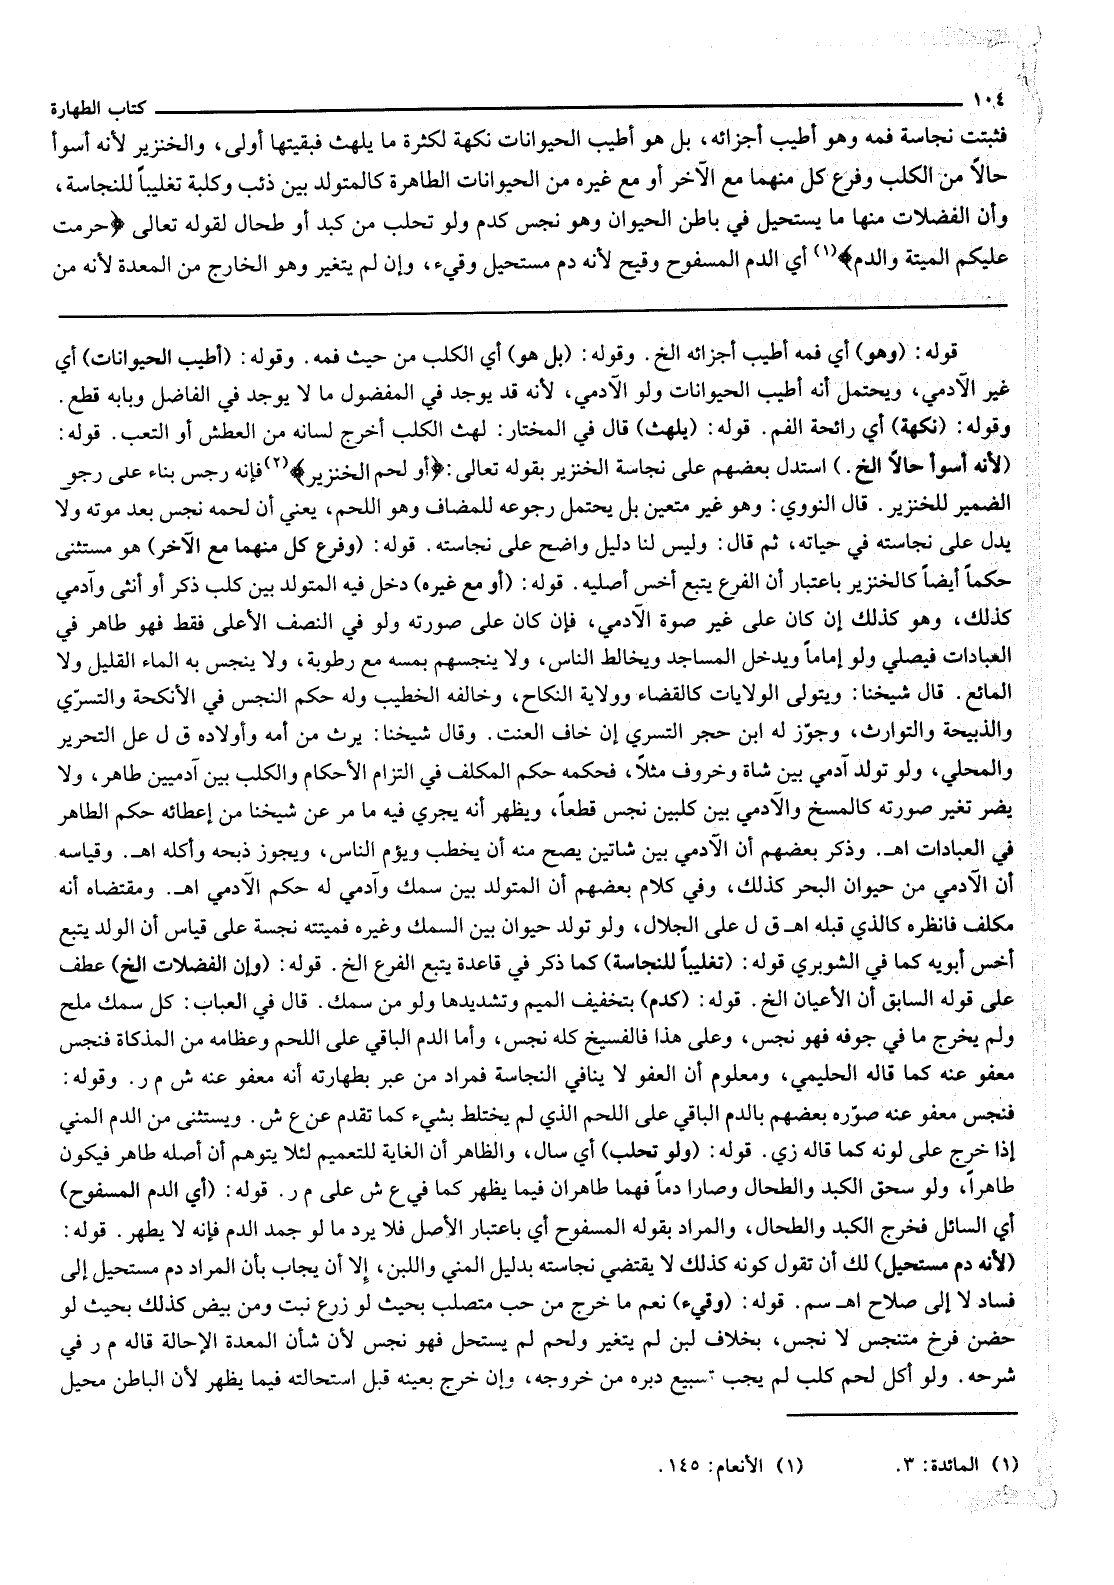 ١٠٤ كتاب الطهارة
فثبتت نجاسة فمه وهو أطيب أجزائه، بل هو أطيب الحيوانات نكهة لكثرة ما يلهث فبقيتها أولى، والخنزير لأنه أسوأ
حالاً من الكلب وفرع كل منهما مع الآخر أو مع غيره من الحيوانات الطاهرة كالمتولد بين ذئب وكلبة تغليباً للنجاسة،
وأن الفضلات منها ما يستحيل في باطن الحيوان وهو نجس كدم ولو تحلب من كبد أو طحال لقوله تعالى ﴿حرمت
عليكم الميتة والدم﴾(١) أي الدم المسفوح وقيح لأنه دم مستحيل وقيء، وإن لم يتغير وهو الخارج من المعدة لأنه من
قوله: (وهو) أي فمه أطيب أجزائه الخ. وقوله: (بل هو) أي الكلب من حيث فمه. وقوله: (أطيب الحيوانات) أي
غير الآدمي، ويحتمل أنه أطيب الحيوانات ولو الآدمي، لأنه قد يوجد في المفضول ما لا يوجد في الفاضل وبابه قطع.
وقوله: (نكهة) أي رائحة الفم. قوله: (يلهث) قال في المختار: لهث الكلب أخرج لسانه من العطش أو التعب. قوله:
(لأنه أسوأ حالاً الخ.) استدل بعضهم على نجاسة الخنزير بقوله تعالى: ﴿أو لحم الخنزير﴾(٢) فإنه رجس بناء على رجو
الضمير للخنزير. قال النووي: وهو غير متعين بل يحتمل رجوعه للمضاف وهو اللحم، يعني أن لحمه نجس بعد موته ولا
يدل على نجاسته في حياته، ثم قال: وليس لنا دليل واضح على نجاسته. قوله: (وفرع كل منهما مع الآخر) هو مستثنى
حكماً أيضاً كالخنزير باعتبار أن الفرع يتبع أخس أصليه. قوله: (أو مع غيره) دخل فيه المتولد بين كلب ذكر أو أنثى وآدمي
كذلك، وهو كذلك إن كان على غير صوة الآدمي، فإن كان على صورته ولو في النصف الأعلى فقط فهو طاهر في
العبادات فيصلي ولو إماماً ويدخل المساجد ويخالط الناس، ولا ينجسهم بمسه مع رطوبة، ولا ينجس به الماء القليل ولا
المائع. قال شيخنا: ويتولى الولايات كالقضاء وولاية النكاح، وخالفه الخطيب وله حكم النجس في الأنكحة والتسرّي
والذبيحة والتوارث، وجوّز له ابن حجر التسري إن خاف العنت. وقال شيخنا: يرث من أمه وأولاده ق ل عل التحرير
والمحلي، ولو تولد آدمي بين شاة وخروف مثلاً، فحكمه حكم المكلف في التزام الأحكام والكلب بين آدميين طاهر، ولا
يضر تغير صورته كالمسخ والآدمي بين كلبين نجس قطعاً، ويظهر أنه يجري فيه ما مر عن شيخنا من إعطائه حكم الطاهر
في العبادات اهـ. وذكر بعضهم أن الآدمي بين شاتين يصح منه أن يخطب ويؤم الناس، ويجوز ذبحه وأكله اهـ. وقياسه
أن الآدمي من حيوان البحر كذلك، وفي كلام بعضهم أن المتولد بين سمك وآدمي له حكم الآدمي اهـ. ومقتضاه أنه
مكلف فانظره كالذي قبله اهـ ق ل على الجلال، ولو تولد حيوان بين السمك وغيره فميتته نجسة على قياس أن الولد يتبع
أخس أبويه كما في الشوبري قوله: (تغليباً للنجاسة) كما ذكر في قاعدة يتبع الفرع الخ. قوله: (وإن الفضلات الخ) عطف
على قوله السابق أن الأعيان الخ. قوله: (كدم) بتخفيف الميم وتشديدها ولو من سمك. قال في العباب: كل سمك ملح
ولم يخرج ما في جوفه فهو نجس، وعلى هذا فالفسيخ كله نجس، وأما الدم الباقي على اللحم وعظامه من المذكاة فنجس
معفو عنه كما قاله الحليمي، ومعلوم أن العفو لا ينافي النجاسة فمراد من عبر بطهارته أنه معفو عنه ش م ر. وقوله:
فنجس معفو عنه صوّره بعضهم بالدم الباقي على اللحم الذي لم يختلط بشيء كما تقدم عن ع ش. ويستثنى من الدم المني
إذا خرج على لونه كما قاله زي. قوله: (ولو تحلب) أي سال، والظاهر أن الغاية للتعميم لئلا يتوهم أن أصله طاهر فيكون
طاهراً، ولو سحق الكبد والطحال وصارا دماً فهما طاهران فيما يظهر كما في ع ش على م ر. قوله: (أي الدم المسفوح)
أي السائل فخرج الكبد والطحال، والمراد بقوله المسفوح أي باعتبار الأصل فلا يرد ما لو جمد الدم فإنه لا يطهر. قوله:
(لأنه دم مستحيل) لك أن تقول كونه كذلك لا يقتضي نجاسته بدليل المني واللبن، إلا أن يجاب بأن المراد دم مستحيل إلى
فساد لا إلى صلاح اهـ سم. قوله: (وقيء) نعم ما خرج من حب متصلب بحيث لو زرع نبت ومن بيض كذلك بحيث لو
حضن فرخ متنجس لا نجس، بخلاف لبن لم يتغير ولحم لم يستحل فهو نجس لأن شأن المعدة الإحالة قاله م ر في
شرحه. ولو أكل لحم كلب لم يجب تسبيع دبره من خروجه، وإن خرج بعينه قبل استحالته فيما يظهر لأن الباطن محيل
(١) المائدة: ٣. (١) الأنعام: ١٤٥.